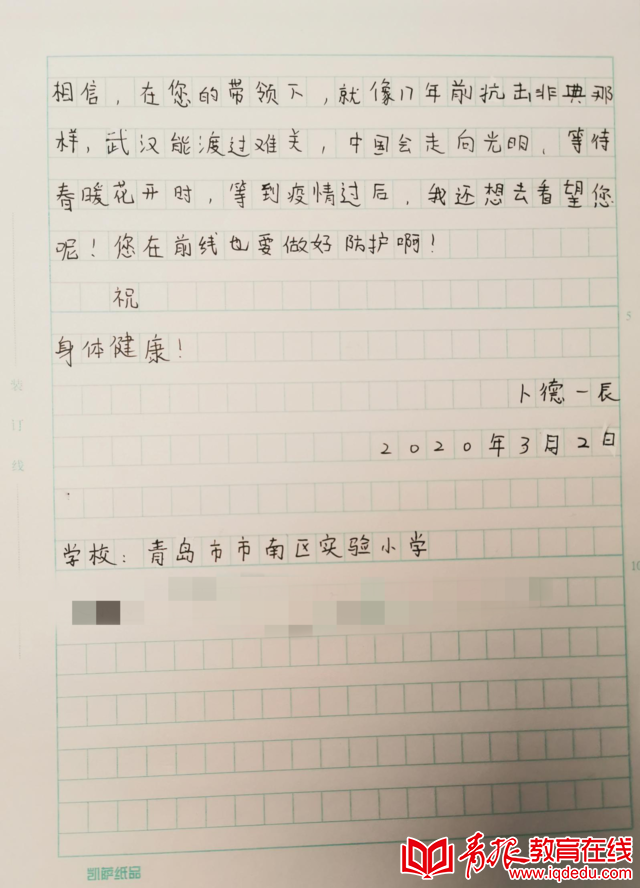 相信，在您的带领下，就像17年前抗击非典那
样，武汉能渡过难关，中国会走向光明、等待
春暖花开时，等到疫情过后，我还想去看望您
呢！您在前线也要做好防护啊！
祝
5
身体健康！
卜德一辰
2020年3月2日
学校：青岛市市南区实验小学
10
装订线
凯萨纸品
青报教育在线
www.iqdedu.com